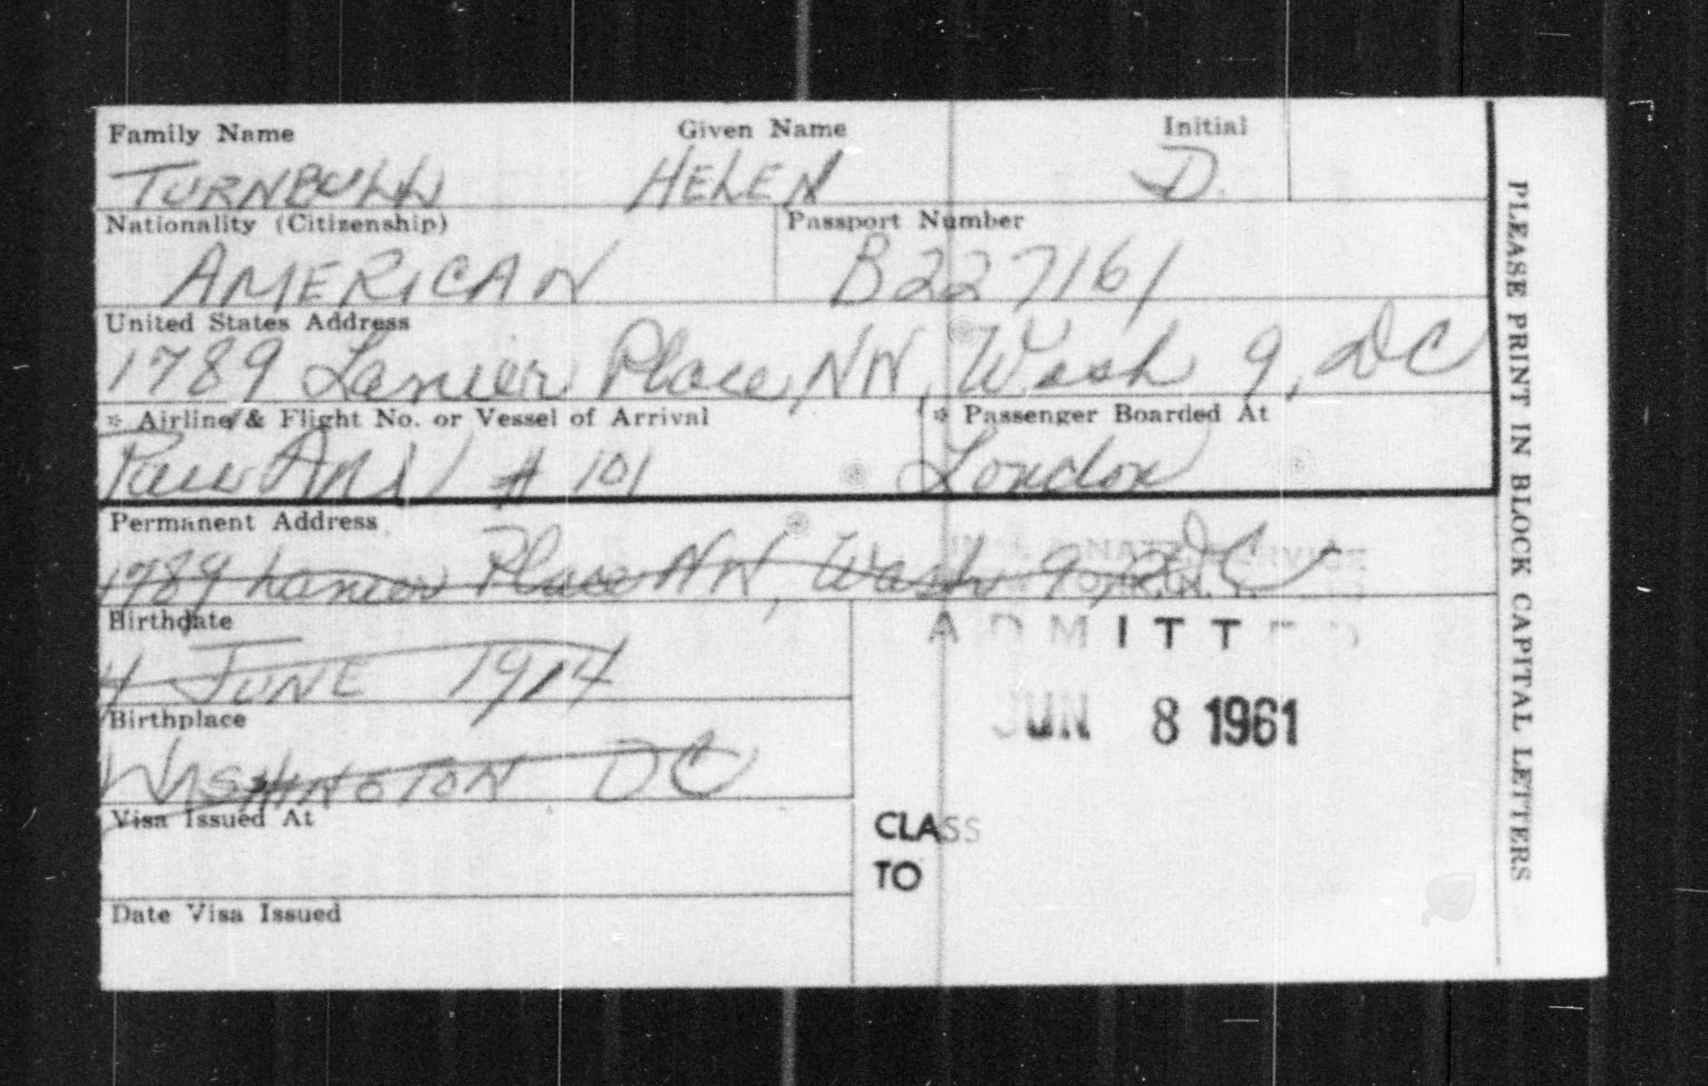 Family Name Given Name Initial
TURNBULL HELEN D.
Nationality (Citizenship) Passport Number
AMERICAN B227161
United States Address
1789 Lanier Place, NW, Wash 9, DC
* Airline & Flight No. or Vessel of Arrival * Passenger Boarded At
Pan Am # 101 London
Permanent Address
1789 Lanier Place NW, Wash 9, DC
Birthdate
4 JUNE 1914
ADMITTED
Birthplace
JUN 8 1961
WASHINGTON DC
Visa Issued At
CLASS
TO
Date Visa Issued
PLEASE PRINT IN BLOCK CAPITAL LETTERS